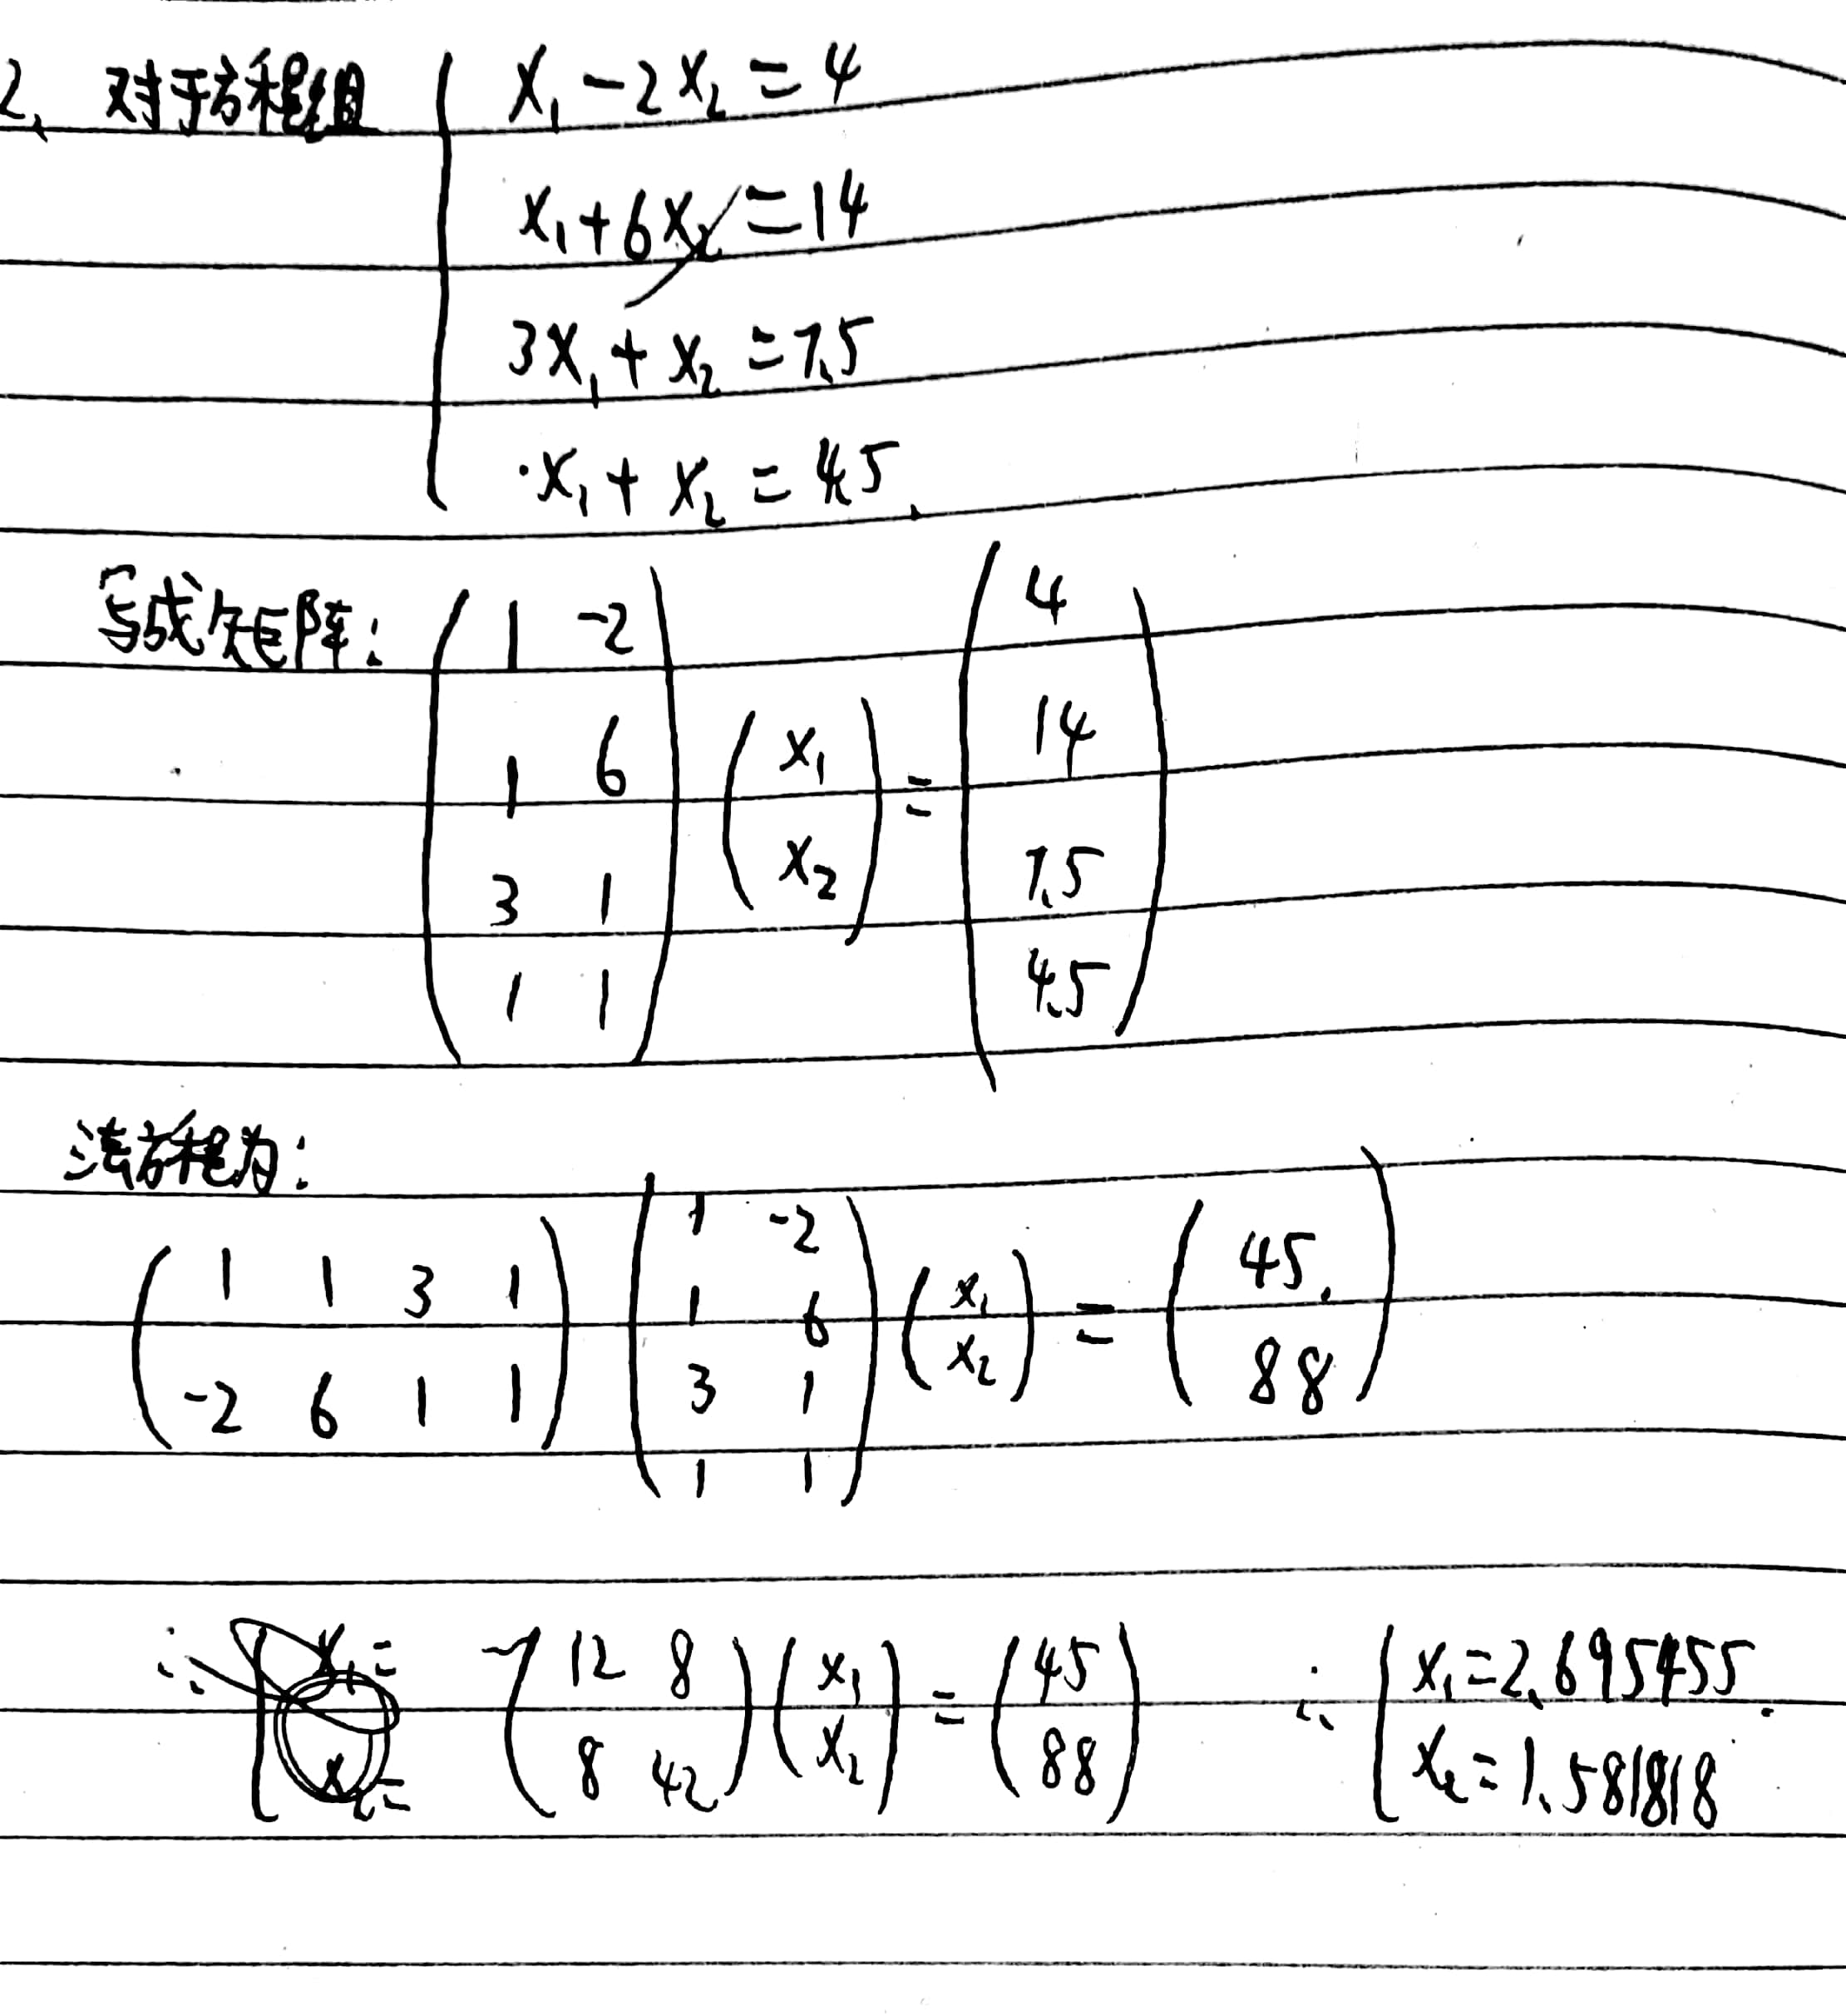 2、对于方程组 { x₁ - 2x₂ = 4
x₁ + 6x₂ = 14
3x₁ + x₂ = 7.5
x₁ + x₂ = 4.5
写成矩阵: ( 1 -2
1 6
3 1
1 1 ) ( x₁
x₂ ) = ( 4
14
7.5
4.5 )
法方程为:
( 1 1 3 1
-2 6 1 1 ) ( 1 -2
1 6
3 1
1 1 ) ( x₁
x₂ ) = ( 45.
88 )
( 12 8
8 42 ) ( x₁
x₂ ) = ( 45
88 ) ∴ { x₁ = 2.695455
x₂ = 1.581818